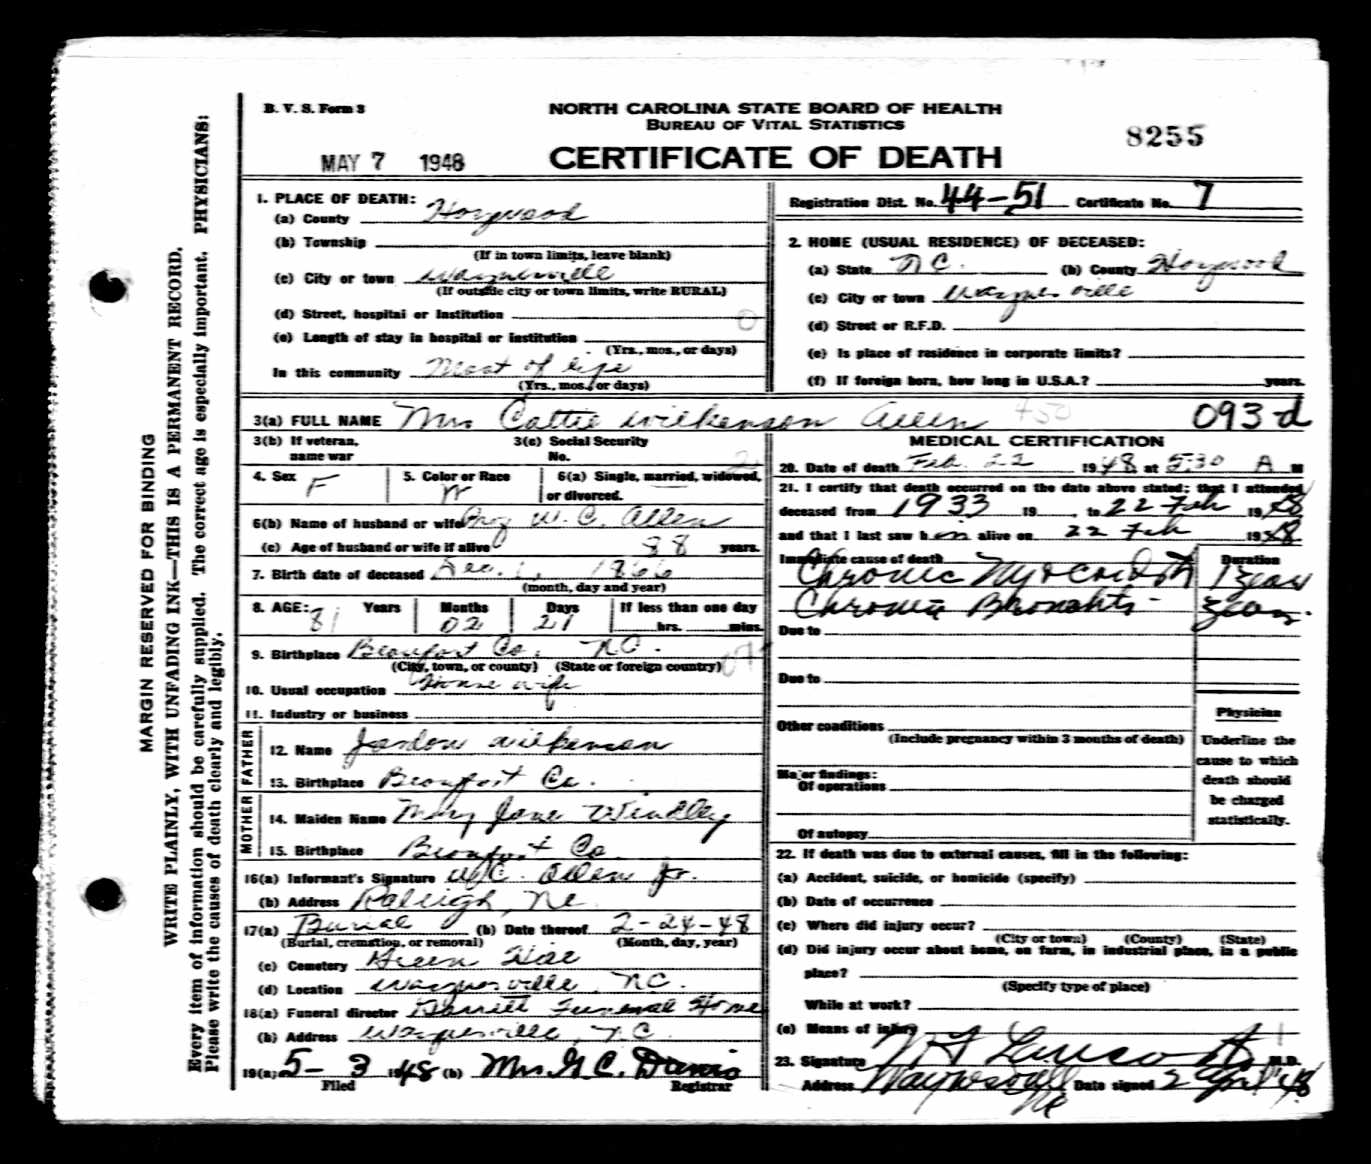 B. V. S. Form 3
NORTH CAROLINA STATE BOARD OF HEALTH
BUREAU OF VITAL STATISTICS
8255
MAY 7 1948
CERTIFICATE OF DEATH
MARGIN RESERVED FOR BINDING
WRITE PLAINLY, WITH UNFADING INK—THIS IS A PERMANENT RECORD.
Every item of information should be carefully supplied. The correct age is especially important. PHYSICIANS:
Please write the causes of death clearly and legibly.
1. PLACE OF DEATH:
(a) County Haywood
(b) Township
(If in town limits, leave blank)
(c) City or town Waynesville
(If outside city or town limits, write RURAL)
(d) Street, hospital or Institution
(e) Length of stay in hospital or institution
(Yrs., mos., or days)
In this community Most of life
(Yrs., mos., or days)
Registration Dist. No. 44-51 Certificate No. 7
2. HOME (USUAL RESIDENCE) OF DECEASED:
(a) State N C. (b) County Haywood
(c) City or town Waynesville
(d) Street or R.F.D.
(e) Is place of residence in corporate limits?
(f) If foreign born, how long in U.S.A.? years.
3(a) FULL NAME Mrs Cattie Wilkenson Allen 093d
3(b) If veteran, name war
3(c) Social Security No.
4. Sex F
5. Color or Race W
6(a) Single, married, widowed, or divorced.
6(b) Name of husband or wife W. C. Allen
(c) Age of husband or wife if alive 88 years.
7. Birth date of deceased Dec. 1, 1866
(month, day and year)
8. AGE: 81 Years Months 02 Days 21 If less than one day
hrs. mins.
9. Birthplace Beaufort Co. NC.
(City, town, or county) (State or foreign country)
10. Usual occupation House wife
11. Industry or business
FATHER
12. Name Wilkenson
13. Birthplace Beaufort Co.
MOTHER
14. Maiden Name Mary Jane Windley
15. Birthplace Beaufort Co
16(a) Informant's Signature W.C. Allen Jr.
(b) Address Raleigh, NC
17(a) Burial (b) Date thereof 2-24-48
(Burial, cremation, or removal) (Month, day, year)
(c) Cemetery Green Hill
(d) Location Waynesville, N.C.
18(a) Funeral director Garrett Funeral Home
(b) Address Waynesville, N.C.
19(a) 5-3 1948 (b) Mrs. G. C. Davis
Filed Registrar
MEDICAL CERTIFICATION
20. Date of death Feb. 22 1948 at 5:30 A M
21. I certify that death occurred on the date above stated; that I attended
deceased from 1933 19 , to 22 Feb 1948
and that I last saw h alive on 22 Feb 1948
Immediate cause of death Duration
Chronic Myocarditis
Chronic Bronchitis
Due to
Due to
Other conditions
(Include pregnancy within 3 months of death)
Major findings:
Of operations
Of autopsy
Physician
Underline the
cause to which
death should
be charged
statistically.
22. If death was due to external causes, fill in the following:
(a) Accident, suicide, or homicide (specify)
(b) Date of occurrence
(c) Where did injury occur?
(City or town) (County) (State)
(d) Did injury occur about home, on farm, in industrial place, in a public
place?
(Specify type of place)
While at work?
(e) Means of injury
23. Signature M.D.
Address Waynesville NC Date signed 2 April '48